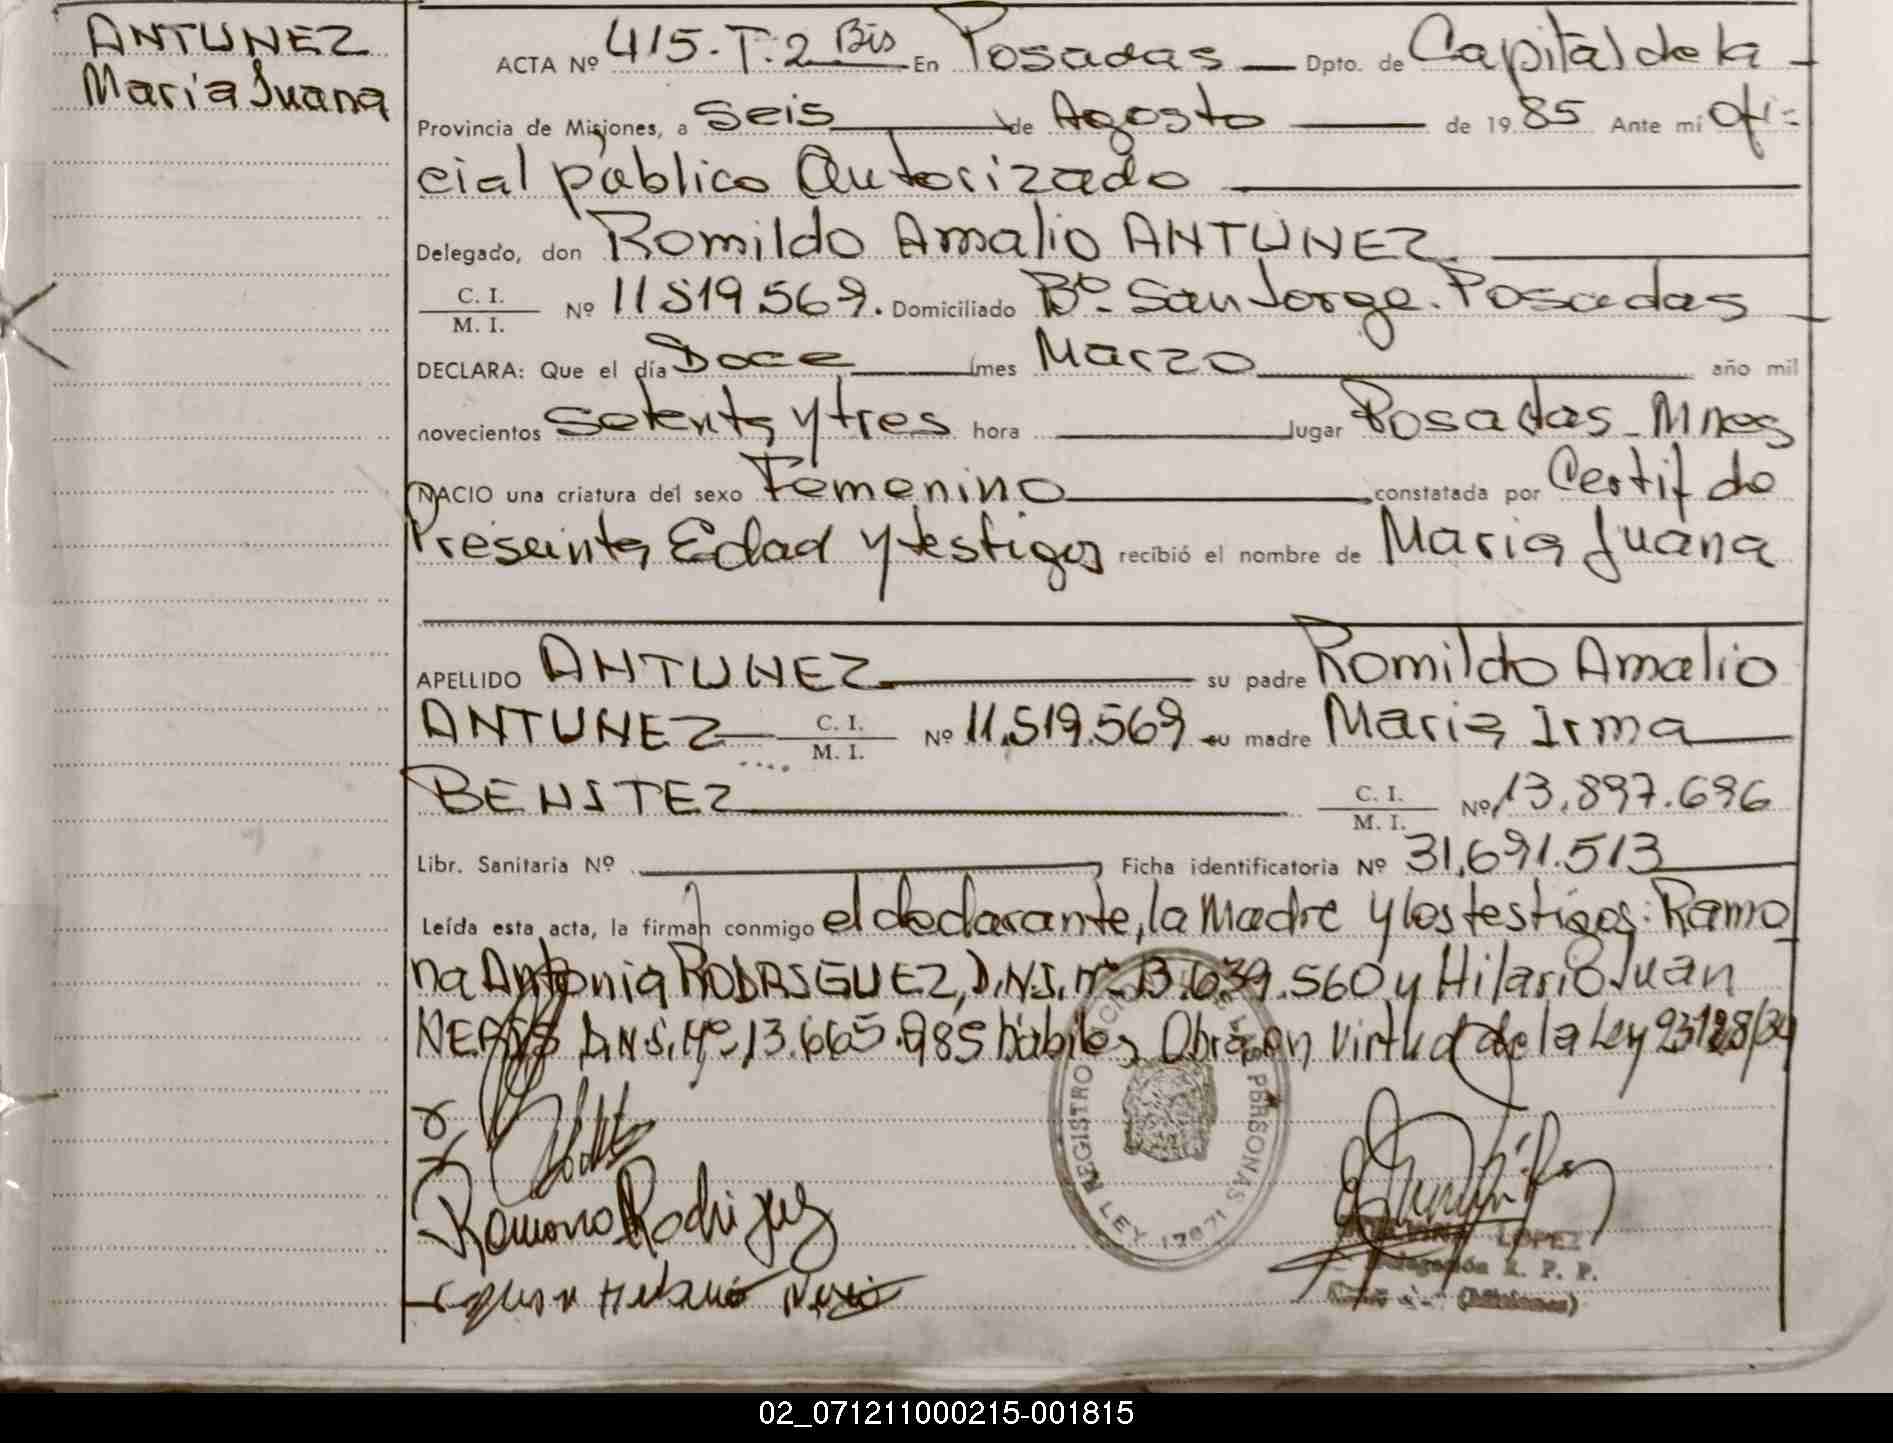 ANTUNEZ
Maria Juana
ACTA Nº 415. T. 2 Bis En Posadas Dpto. de Capital de la
Provincia de Misiones, a Seis de Agosto de 19 85 Ante mí ofi=
cial público Autorizado
Delegado, don Romildo Amalio ANTUNEZ
C. I.
M. I. Nº 11.519.569. Domiciliado Bº San Jorge. Posadas
DECLARA: Que el día Doce mes Marzo año mil
novecientos Setenta y tres hora lugar Posadas - Mnes
NACIO una criatura del sexo Femenino constatada por Certif de
Presunta Edad y testigos recibió el nombre de Maria Juana
APELLIDO ANTUNEZ su padre Romildo Amalio
ANTUNEZ C. I.
M. I. Nº 11.519.569 su madre Maria Irma
BENITEZ C. I.
M. I. Nº 13.897.696
Libr. Sanitaria Nº Ficha identificatoria Nº 31.691.513
Leída esta acta, la firman conmigo el declarante, la Madre y los testigos: Ramo
na Antonia RODRIGUEZ, D.N.I. nº 13.639.560 y Hilario Juan
D.N.I. Nº 13.665.985 hábiles Obra en virtud de la Ley
Ramona Rodriguez
REGISTRO PERSONAS
LEY
LOPEZ
Delegación R. P. P.
(Misiones)
02_071211000215-001815